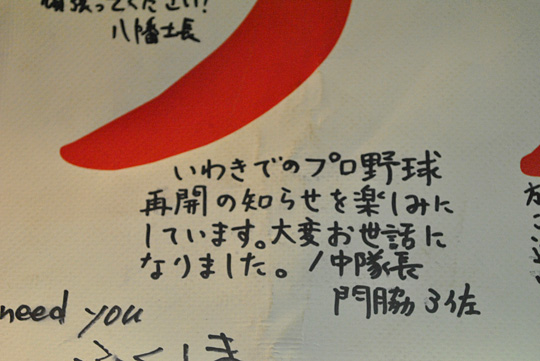 頑張ってください!
八幡士長
いわきでのプロ野球
再開の知らせを楽しみに
しています。大変お世話に
なりました。1中隊長
門脇3佐
need you
ふくしま